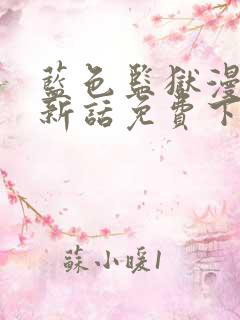 藍色監獄漫
新話免費下
蘇小暖1